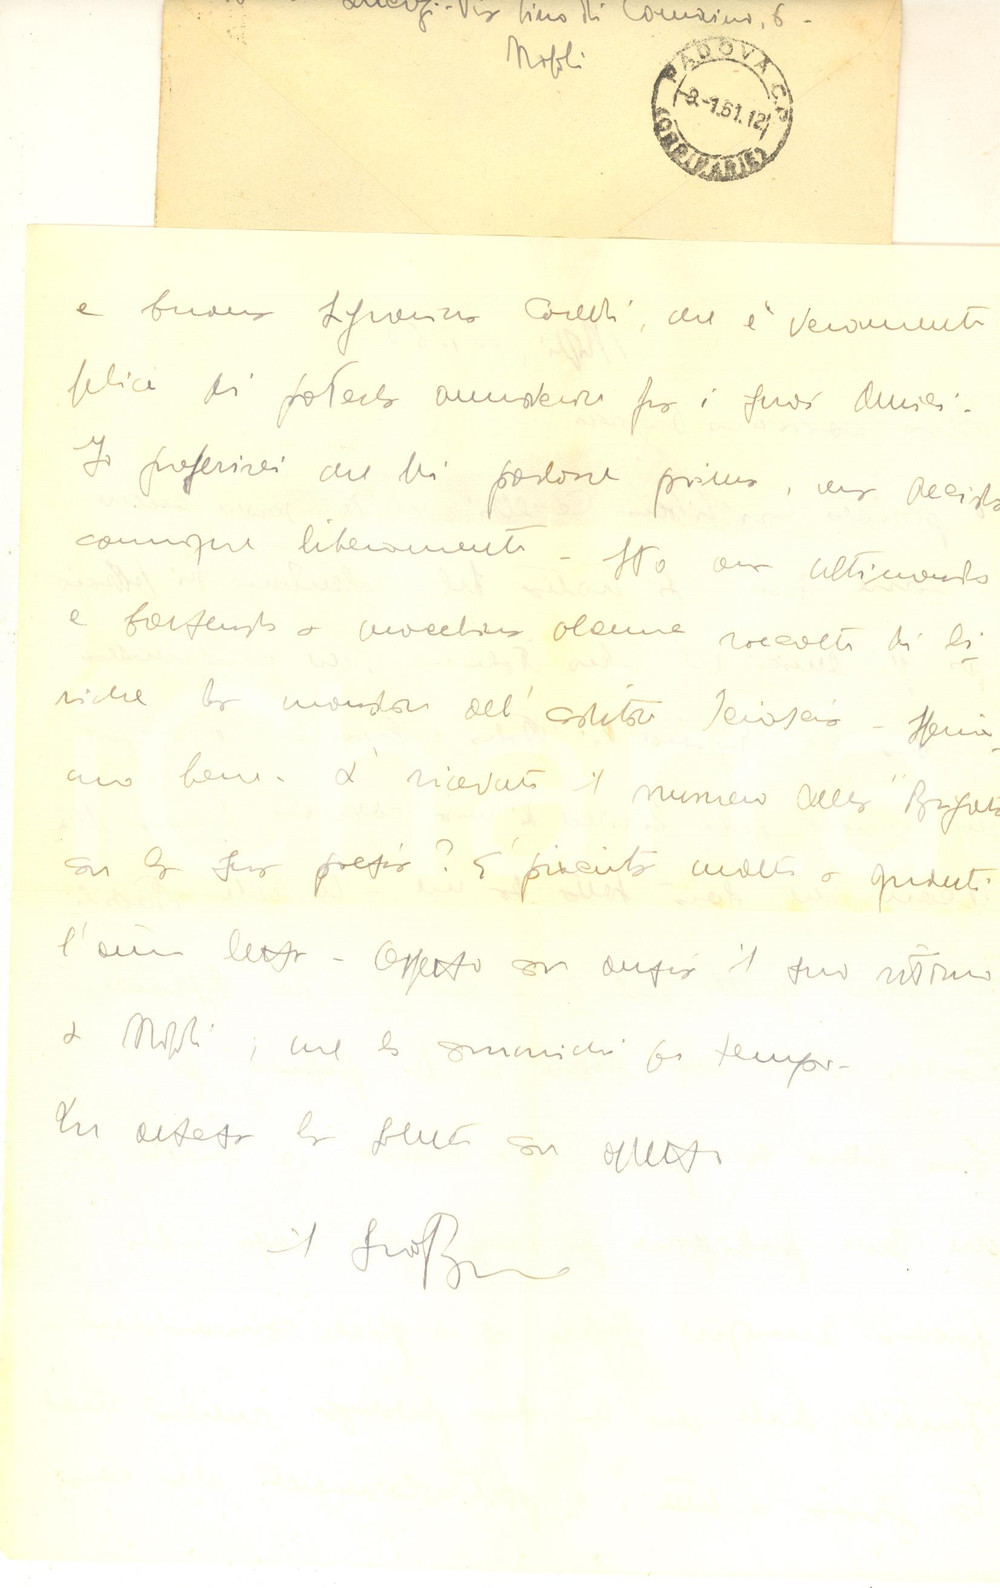 Via Tino di Camaino, 6 -
Napoli
PADOVA C.P.
-9.-1.61.12
(ORDINARIE)
e buona Signorina, che è veramente
felice di poterla per i suoi amici.
Io preferirei che Lei prima, ma decida
comunque liberamente - Sto ora ultimando
e battendo a macchina alcune raccolte di li
riche da mandare all'editore - Speria
mo bene. À ricevuto il numero della "Brigata
con la sua poesia? È piaciuta molto a quanti
l'anno letta - Aspetto con ansia il suo ritorno
a Napoli, me lo comunichi per tempo -
In attesa la saluto con affetto
il Suo